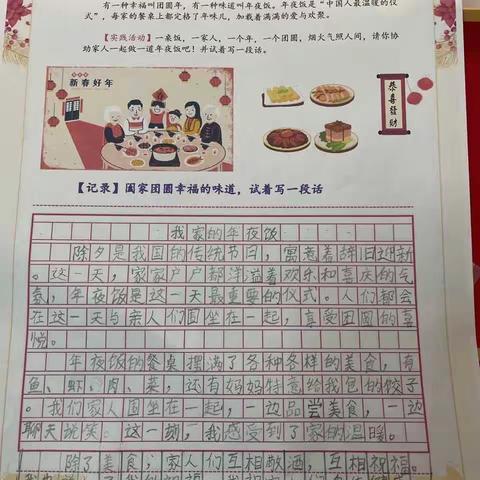 有一种幸福叫团圆年，有一种味道叫年夜饭。年夜饭是“中国人最温暖的仪
式”，每家的餐桌上都定格了年味儿，加载着满满的爱与欢聚。
【实践活动】一桌饭，一家人，一个年，一个团圆，烟火气照人间，请你协
助家人一起做一道年夜饭吧！并试着写一段话。
新春好年
恭喜發財
【记录】阖家团圆幸福的味道，试着写一段话
我家的年夜饭
除夕是我国的传统节日，寓意着辞旧迎新
。这一天，家家户户都洋溢着欢乐和喜庆的气
氛，年夜饭是这一天最重要的仪式。人们都会
在这一天与亲人们围坐在一起，享受团圆的喜
悦。
年夜饭的餐桌摆满了各种各样的美食，有
鱼、虾、肉、菜，还有妈妈特意给我包的饺子
。我们家人围坐在一起，一边品尝美食，一边
聊天说笑。这一刻，我感受到了家的温暖。
除了美食，家人们互相敬酒，互相祝福。